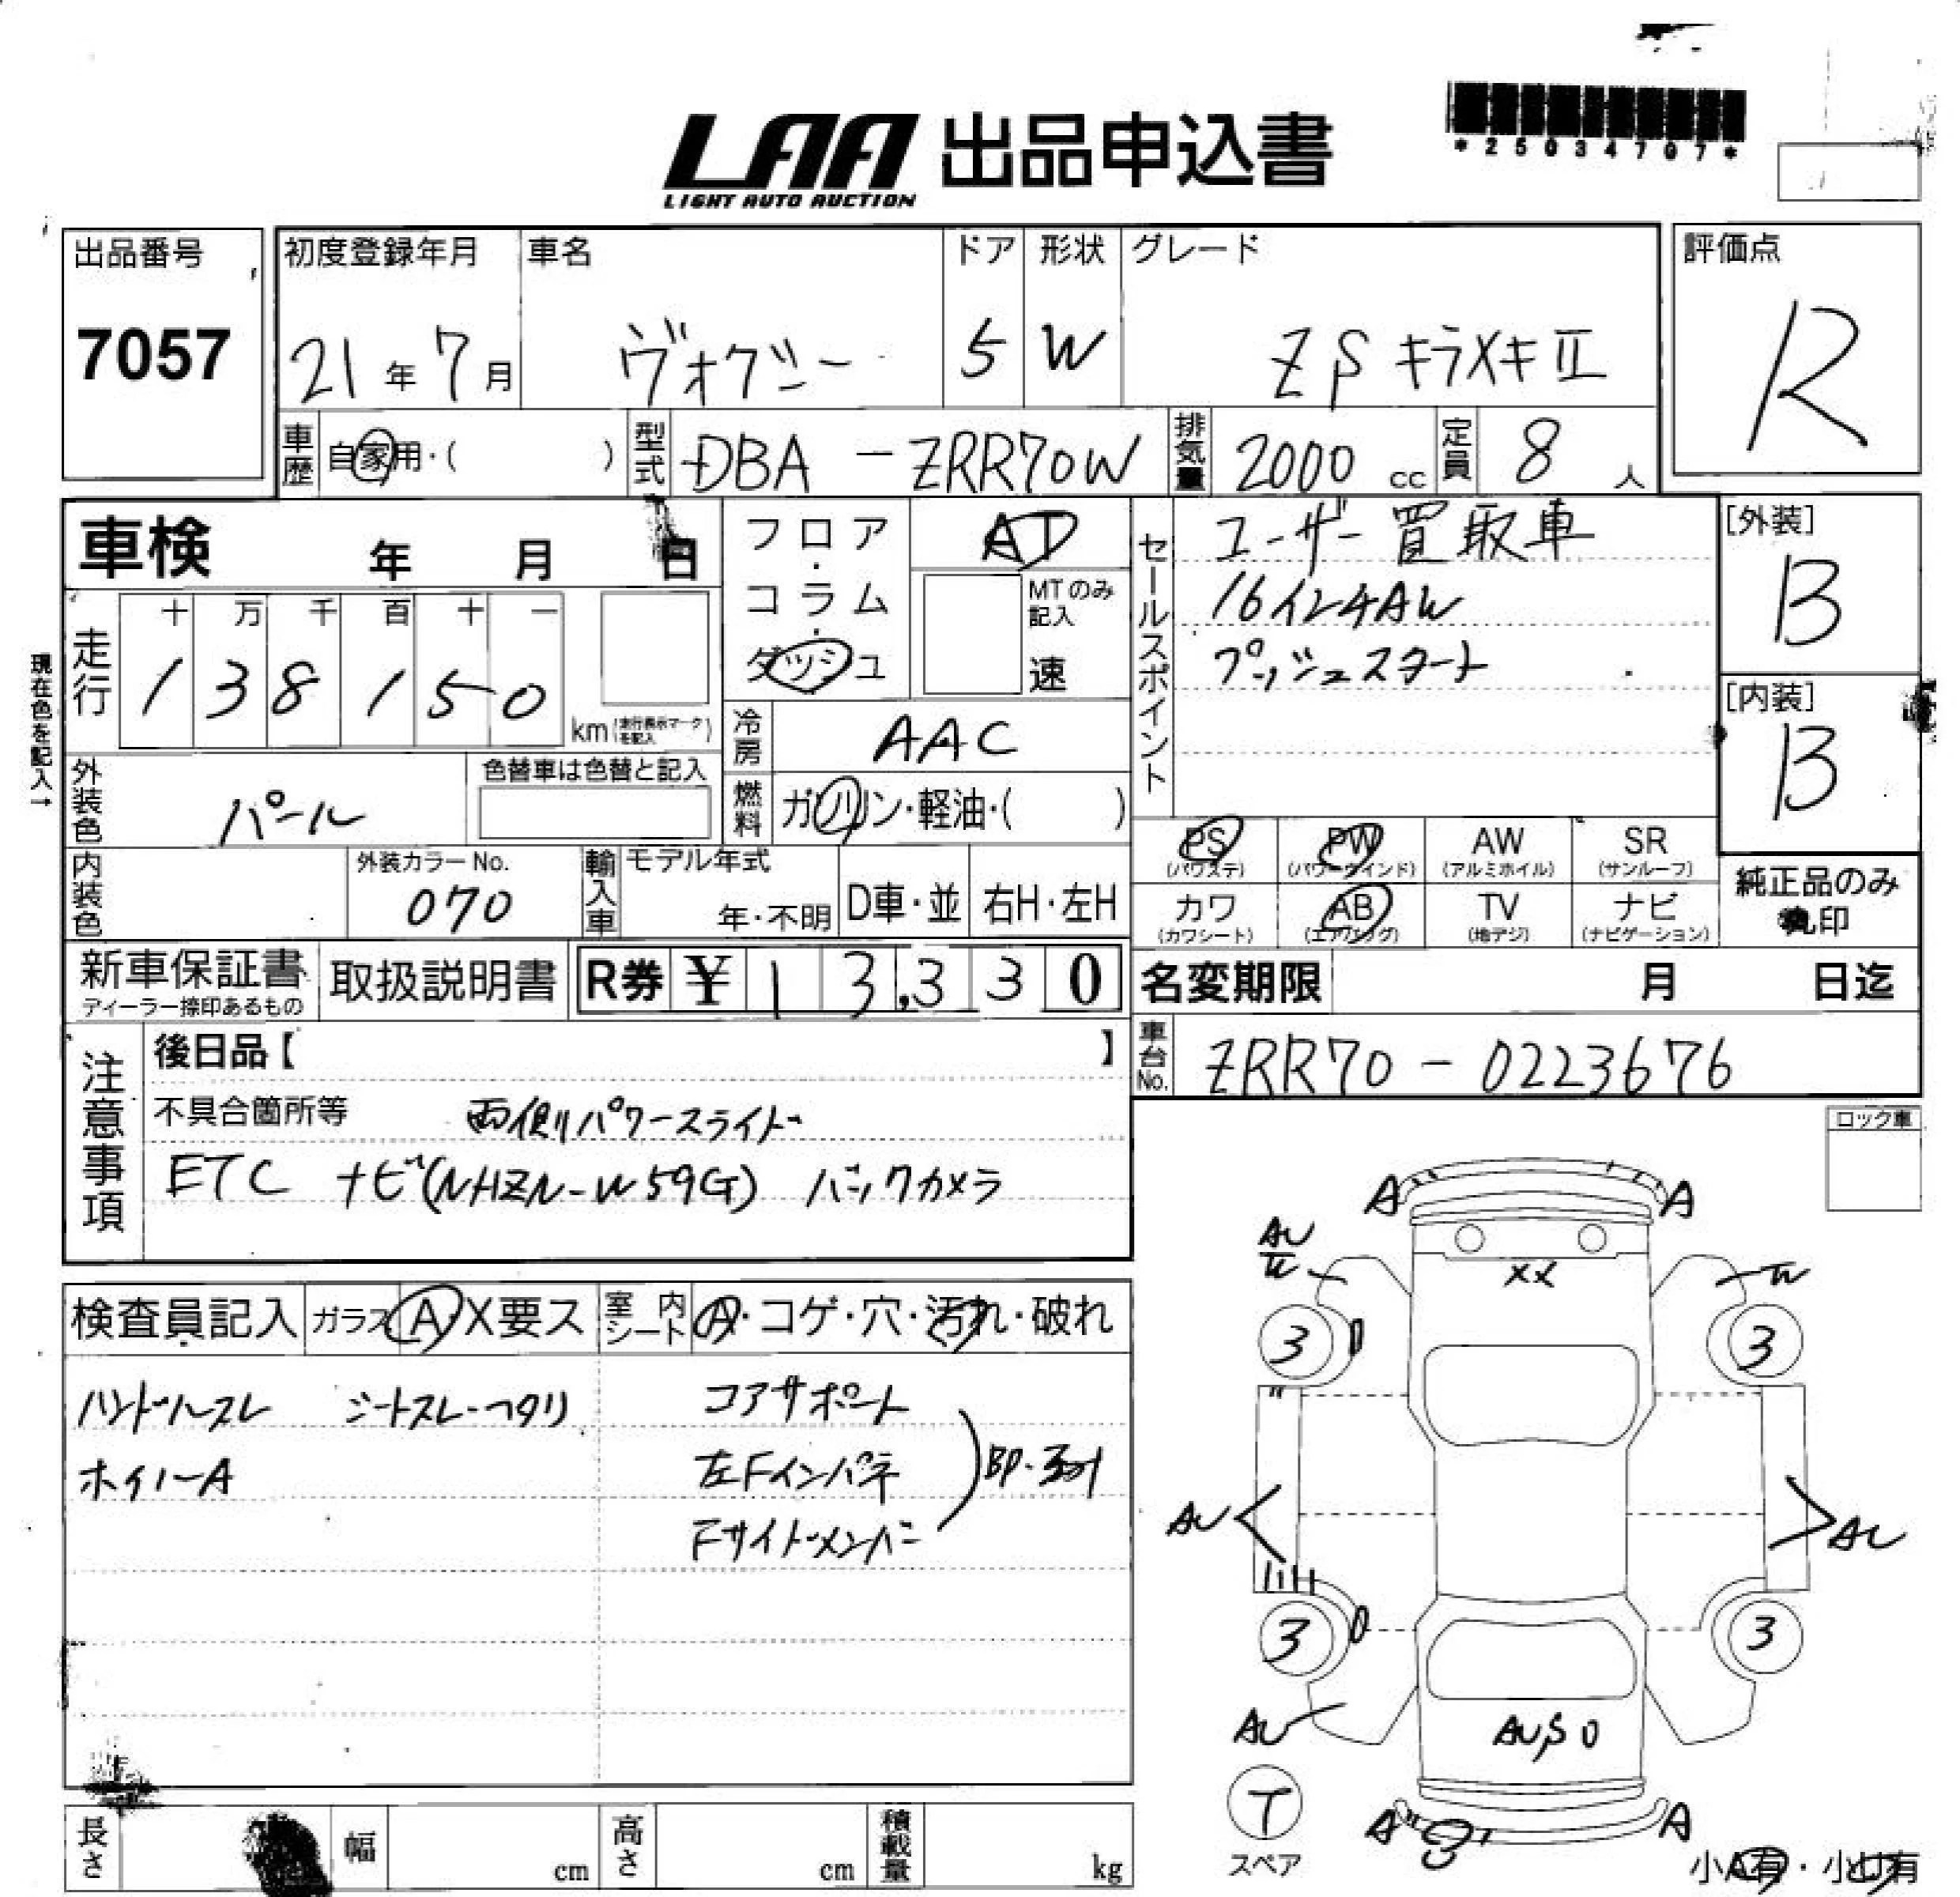 LAA 出品申込書
LIGHT AUTO AUCTION
*25034707*
出品番号
7057
初度登録年月
21年 7月
車名
ヴォクシー
ドア
5
形状
W
グレード
Zβ キラメキⅡ
評価点
R
車歴 自家用・( )
型式 DBA-ZRR70W
排気量 2000 cc
定員 8 人
車検 年 月 日
フロア・コラム・ダッシュ
AT
MTのみ記入
速
セールスポイント
ユーザー買取車
16インチAW
プッシュスタート
[外装]
B
[内装]
B
現在色を記入→
走行
十 万 千 百 十 一
1 3 8 1 5 0
km (走行表示マークを記入)
冷房 AAC
外装色 パール
色替車は色替と記入
燃料 ガソリン・軽油・( )
PS (パワステ)
PW (パワーウインド)
AW (アルミホイル)
SR (サンルーフ)
カワ (カワシート)
AB (エアバッグ)
TV (地デジ)
ナビ (ナビゲーション)
純正品のみ
丸印
内装色
外装カラーNo.
070
輸入車 モデル年式
年・不明
D車・並
右H・左H
新車保証書
ディーラー捺印あるもの
取扱説明書
R券 ¥ 1 3,3 3 0
名変期限 月 日迄
車台No. ZRR70-0223676
注意事項
後日品【 】
不具合箇所等 両側パワースライド
ETC ナビ(NHZN-W59G) バックカメラ
ロック車
検査員記入
ガラス A・X要ス
室内シート A・コゲ・穴・汚れ・破れ
ハンドルスレ シートスレ・ヘタリ コアサポート
ホイルA 左Fインパネ
Fサイドメンバー
A A
AU
W W
XX
3 3
AU AU
3 3
AU
AUβ0
T
スペア
A A
小A有・小U有
長さ
幅 cm
高さ cm
積載量 kg